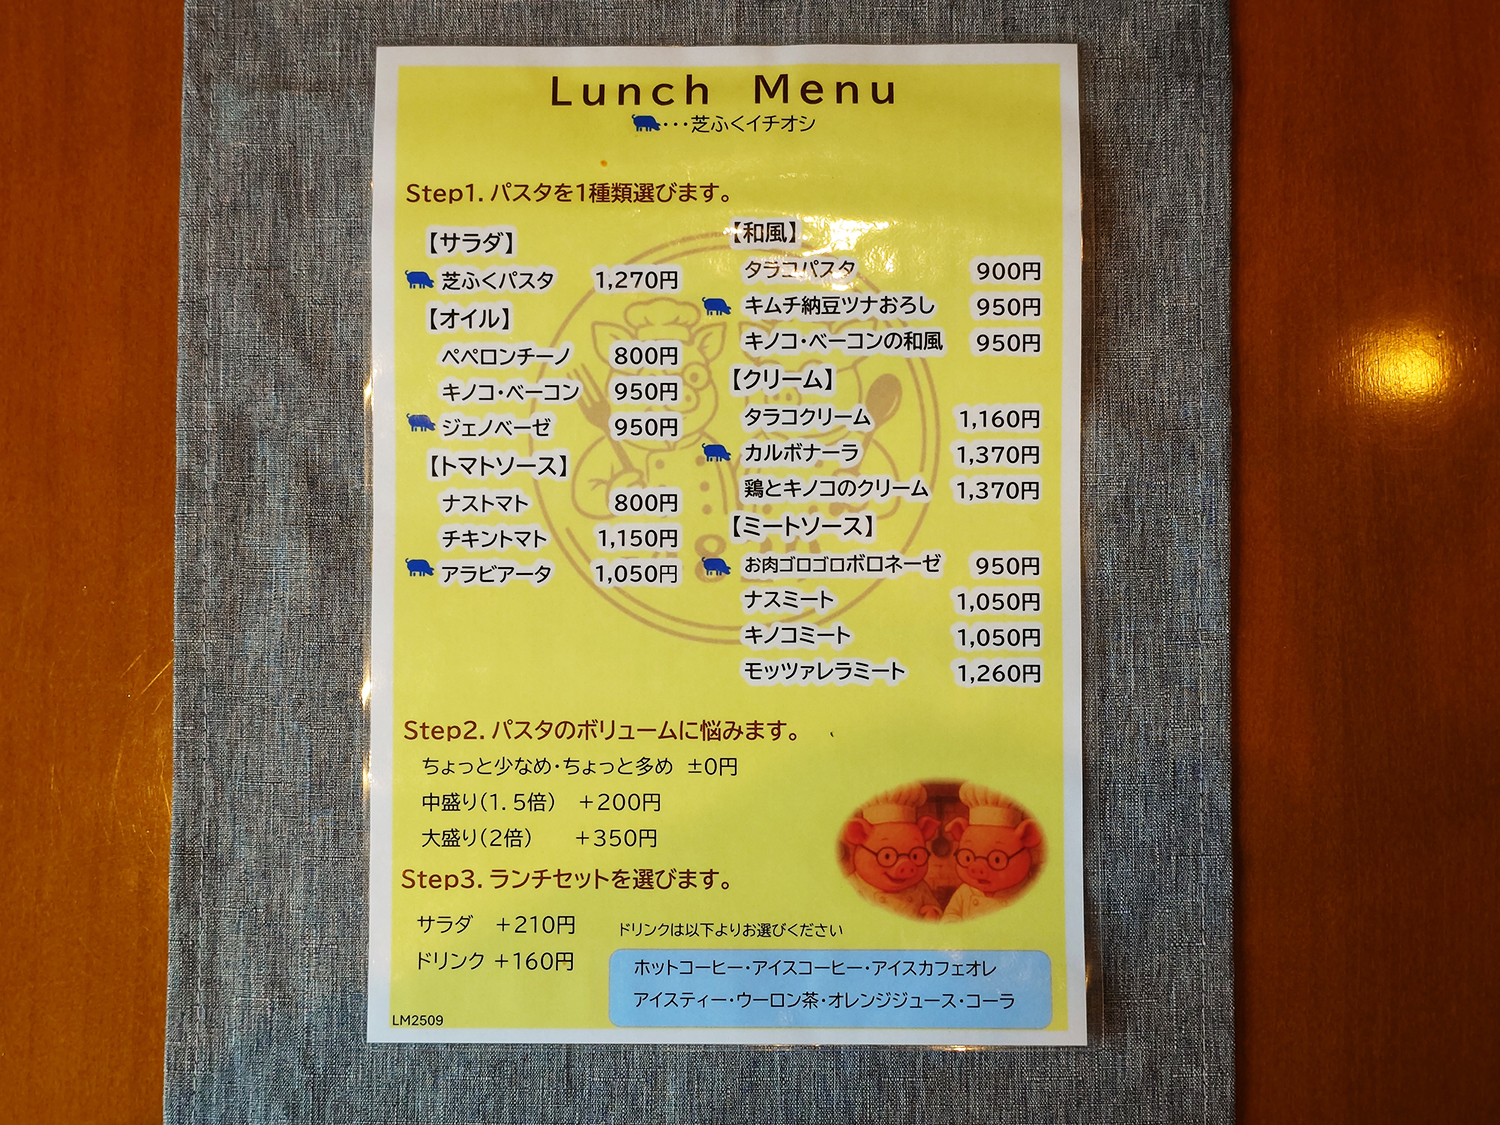 Lunch Menu
・・・芝ふくイチオシ
Step1. パスタを1種類選びます。
【サラダ】
芝ふくパスタ 1,270円
【オイル】
ペペロンチーノ 800円
キノコ・ベーコン 950円
ジェノベーゼ 950円
【トマトソース】
ナストマト 800円
チキントマト 1,150円
アラビアータ 1,050円
【和風】
タラコパスタ 900円
キムチ納豆ツナおろし 950円
キノコ・ベーコンの和風 950円
【クリーム】
タラコクリーム 1,160円
カルボナーラ 1,370円
鶏とキノコのクリーム 1,370円
【ミートソース】
お肉ゴロゴロボロネーゼ 950円
ナスミート 1,050円
キノコミート 1,050円
モッツァレラミート 1,260円
Step2. パスタのボリュームに悩みます。
ちょっと少なめ・ちょっと多め ±0円
中盛り(1.5倍) +200円
大盛り(2倍) +350円
Step3. ランチセットを選びます。
サラダ +210円
ドリンク +160円
ドリンクは以下よりお選びください
ホットコーヒー・アイスコーヒー・アイスカフェオレ
アイスティー・ウーロン茶・オレンジジュース・コーラ
LM2509